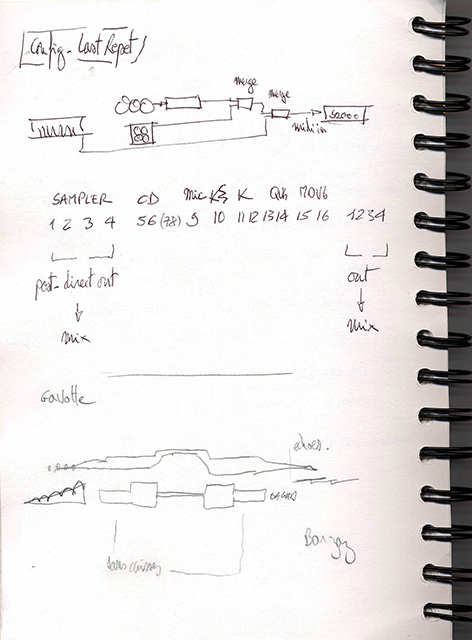 Config - Last Repet
merge
merge
S2000
midi in
SAMPLER CD Mic K K QY6 MOV6
1 2 3 4 5 6 (78) 9 10 11 12 13 14 15 16 1 2 3 4
post-direct out out
mix mix
Gavotte